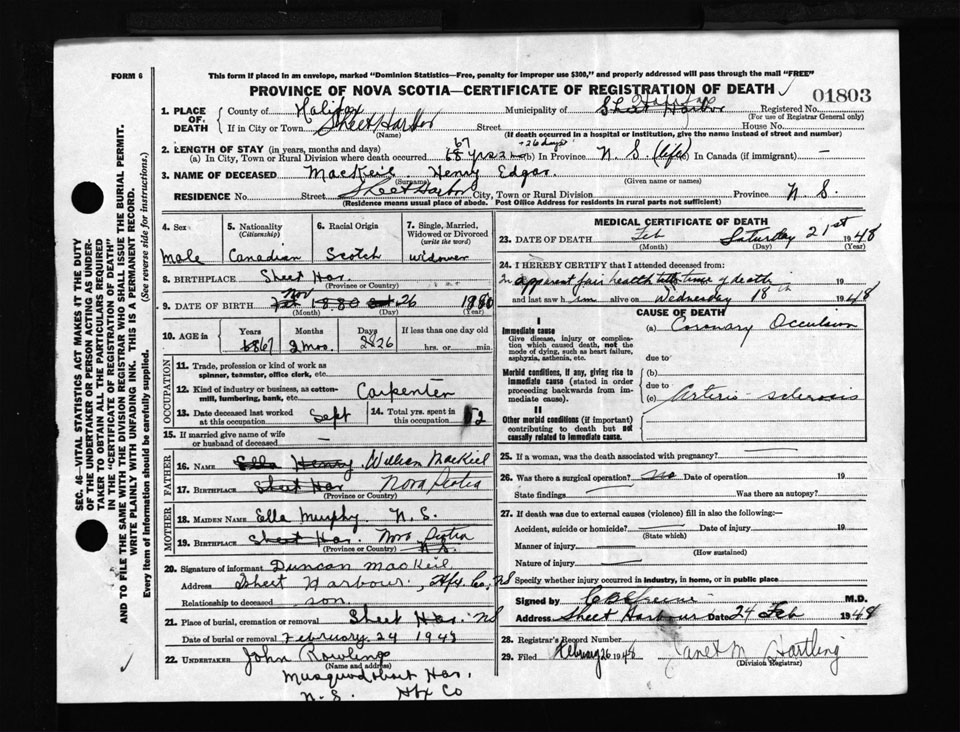 FORM 6
This form if placed in an envelope, marked "Dominion Statistics—Free, penalty for improper use $300," and properly addressed will pass through the mail "FREE"
PROVINCE OF NOVA SCOTIA—CERTIFICATE OF REGISTRATION OF DEATH
01803
1. PLACE OF DEATH County of Halifax Municipality of Sheet Harbor Registered No.
(For use of Registrar General only)
If in City or Town Sheet Harbor Street House No.
(Name) (If death occurred in a hospital or institution, give the name instead of street and number)
2. LENGTH OF STAY (in years, months and days) 67 26 days
(a) In City, Town or Rural Division where death occurred 68 yrs 2 mo (b) In Province N. S. (life) In Canada (if immigrant) —
3. NAME OF DECEASED MacKeil Henry Edgar
(Surname) (Given name or names)
RESIDENCE No. Street Sheet Harbor City, Town or Rural Division Province N. S.
(Residence means usual place of abode. Post Office Address for residents in rural parts not sufficient)
4. Sex 5. Nationality (Citizenship) 6. Racial Origin 7. Single, Married, Widowed or Divorced (write the word)
Male Canadian Scotch widower
8. BIRTHPLACE Sheet Har.
(Province or Country)
9. DATE OF BIRTH Nov 1880 26 1880
(Month) (Day) (Year)
10. AGE in Years Months Days If less than one day old
68 67 2 mos. 28 26 hrs. or min.
OCCUPATION
11. Trade, profession or kind of work as spinner, teamster, office clerk, etc.
12. Kind of industry or business, as cotton-mill, lumbering, bank, etc. Carpenter
13. Date deceased last worked at this occupation Sept 14. Total yrs. spent in this occupation 12
15. If married give name of wife or husband of deceased —
FATHER
16. NAME Ella Henry William MacKiel
17. BIRTHPLACE Sheet Har Nova Scotia
(Province or Country)
MOTHER
18. MAIDEN NAME Ella Murphy N. S.
19. BIRTHPLACE Sheet Har. Nova Scotia
(Province or Country) N.S.
20. Signature of informant Duncan MacKeil
Address Sheet Harbour, Hfx. Co., NS
Relationship to deceased son.
21. Place of burial, cremation or removal Sheet Har. NS
Date of burial or removal February 24 1948
22. UNDERTAKER John Rowlings
(Name and address)
Musquodoboit Har.
N. S. Hfx Co
MEDICAL CERTIFICATE OF DEATH
23. DATE OF DEATH Feb Saturday 21st 1948
(Month) (Day)
24. I HEREBY CERTIFY that I attended deceased from:
In apparent fair health time of death 19
and last saw h im alive on Wednesday 18th 1948
CAUSE OF DEATH
I
Immediate cause (a) Coronary Occulsion
Give disease, injury or complication which caused death, not the mode of dying, such as heart failure, asphyxia, asthenia, etc.
due to
Morbid conditions, if any, giving rise to immediate cause (stated in order proceeding backwards from immediate cause). (b)
due to
(c) Arterio-sclerosis
II
Other morbid conditions (if important) contributing to death but not causally related to immediate cause.
25. If a woman, was the death associated with pregnancy?
26. Was there a surgical operation? no Date of operation 19
State findings Was there an autopsy?
27. If death was due to external causes (violence) fill in also the following:—
Accident, suicide or homicide? Date of injury 19
(State which)
Manner of injury
(How sustained)
Nature of injury
Specify whether injury occurred in industry, in home, or in public place
Signed by M.D.
Address Sheet Harbour Date 24 Feb 1948
28. Registrar's Record Number
29. Filed February 26 1948 Janet M Hartling
(Division Registrar)
SEC. 46—VITAL STATISTICS ACT MAKES IT THE DUTY
OF THE UNDERTAKER OR PERSON ACTING AS UNDER-
TAKER TO OBTAIN ALL THE PARTICULARS REQUIRED
IN THE "CERTIFICATE OF REGISTRATION OF DEATH"
AND TO FILE THE SAME WITH THE DIVISION REGISTRAR WHO SHALL ISSUE THE BURIAL PERMIT.
WRITE PLAINLY WITH UNFADING INK. THIS IS A PERMANENT RECORD.
Every item of information should be carefully supplied. (See reverse side for instructions.)